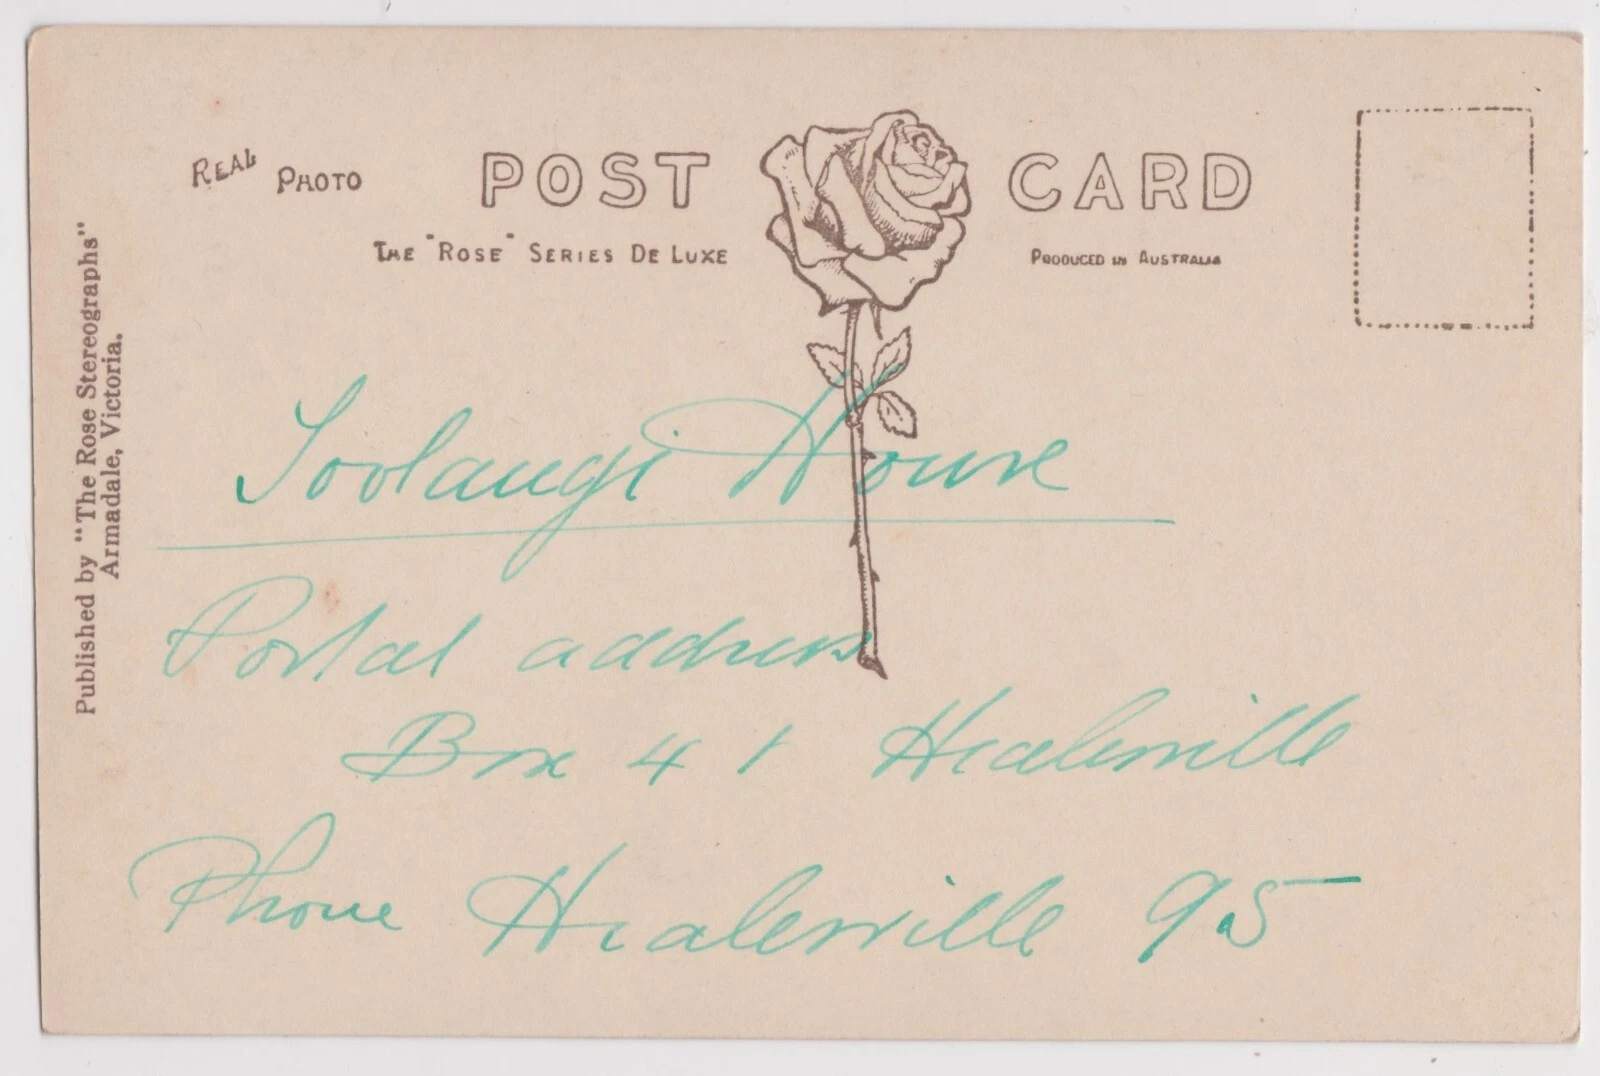 REAL PHOTO
POST CARD
THE "ROSE" SERIES DE LUXE
PRODUCED IN AUSTRALIA
Published by "The Rose Stereographs"
Armadale, Victoria.
Toolangi House
Postal address
Box 41 Healesville
Phone Healesville 95